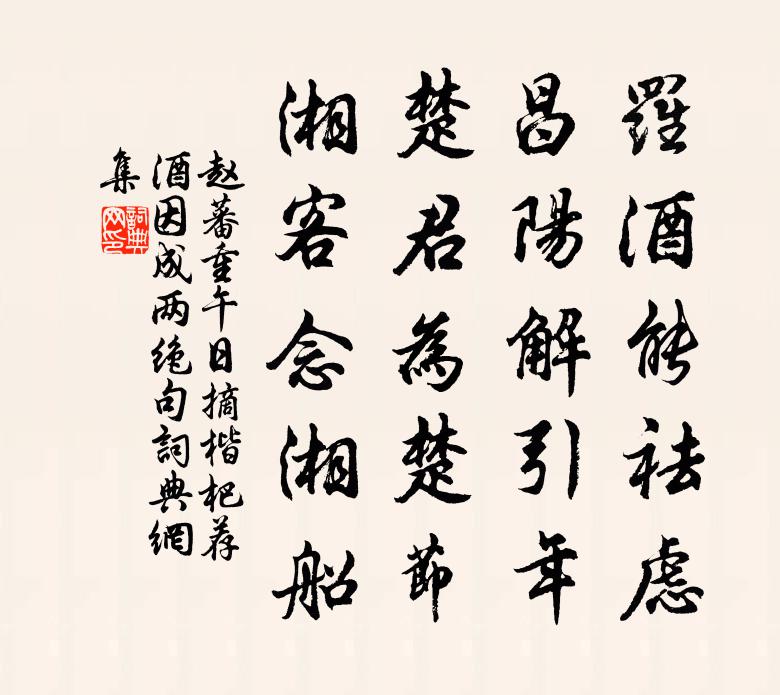 羅酒能祛慮
昌陽解引年
楚君為楚節
湘客念湘船
赵蕃重午日摘楷杷荐
酒因成两绝句詞典網
集
詞典網印